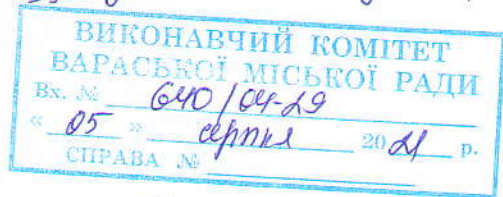 ВИКОНАВЧИЙ КОМІТЕТ
ВАРАСЬКОЇ МІСЬКОЇ РАДИ
Вх. № 640/04-29
« 05 » серпня 2021 р.
СПРАВА №